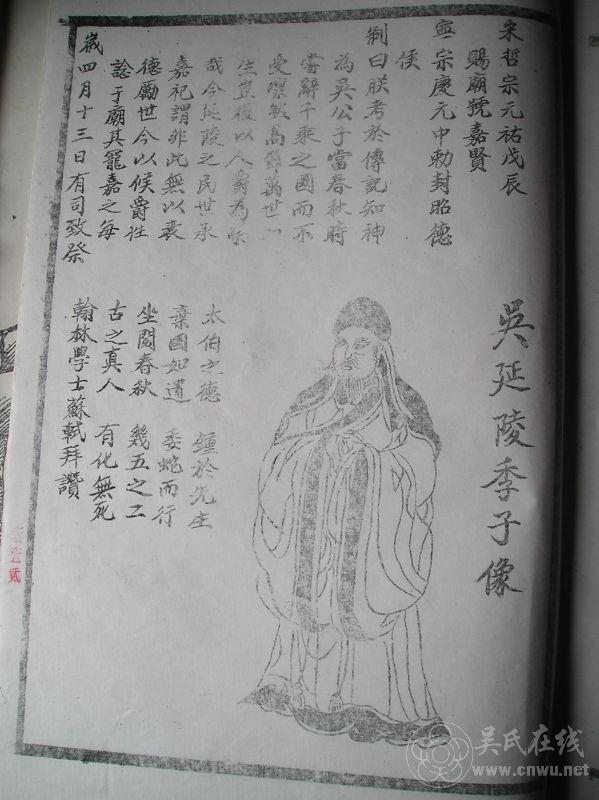 吳延陵季子像
宋哲宗元祐戊辰
賜廟號嘉賢
寧宗慶元中勅封昭德
侯
制曰朕考於傳記知神
為吳公子當春秋時
嘗辭千乘之國而不
受凜然高節萬世如
生豈復以人爵為榮
哉今延陵之民世承
嘉祀謂非此無以表
德勵世今以侯爵往
諗于廟其寵嘉之每
歲四月十三日有司致祭
太伯之德 鍾於先生
棄國如遺 委蛇而行
坐閱春秋 幾五之二
古之真人 有化無死
翰林學士蘇軾拜讚
壹貳
吴氏在线
www.cnwu.net